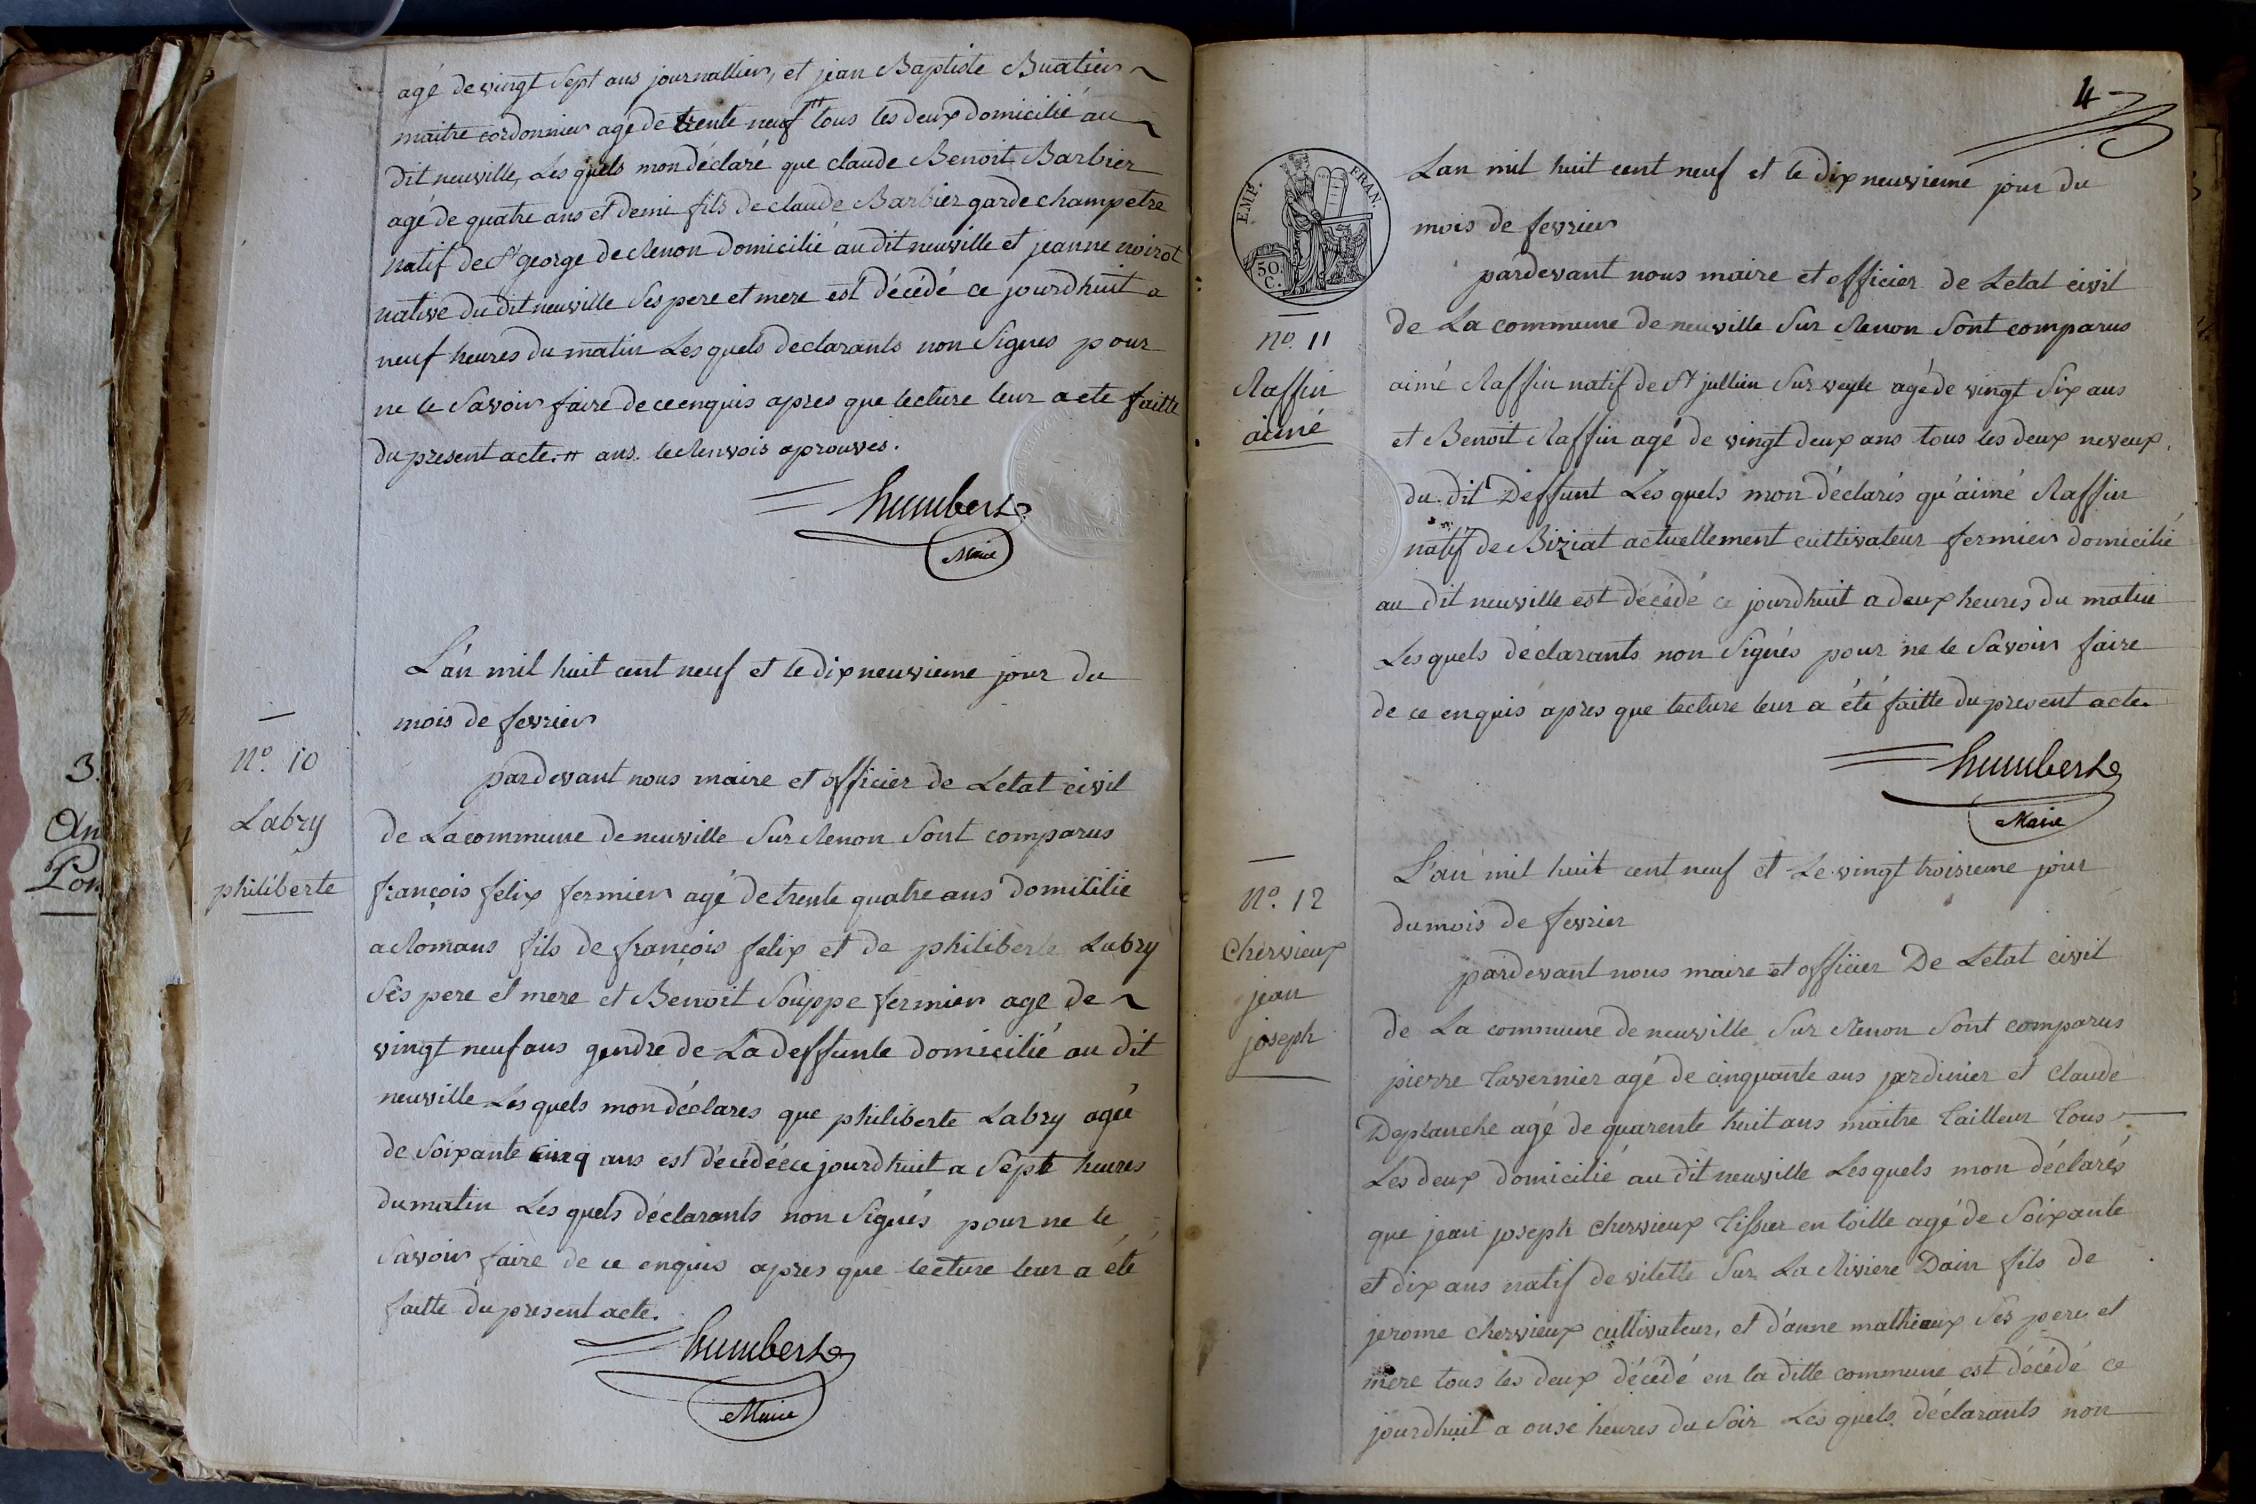 agé de vingt Sept ans journallier, et jean Baptiste Buatier
maitre cordonnier agé de trente neuf # tous les deux domicilié au
dit neuville, Les quels mon déclaré que claude Benoit Barbier
agé de quatre ans et demi fils de claude Barbier garde champetre
natif de St george de Renon domicilié au dit neuville et jeanne noirot
native du dit neuville Ses pere et mere est décédé ce jourdhuit a
neuf heures du matin Les quels declarants non Signes pour
ne le Savoir faire de ce enquis apres que lecture leur a ete faitte
du present acte. # ans. le Renvois aprouves.
humbert
Maire
L'an mil huit cent neuf et le dix neuvieme jour du
mois de fevrier
No. 10
Labry
philiberte
pardevant nous maire et officier de Letat civil
de La commune de neuville Sur Renon Sont comparus
françois felix fermier agé de trente quatre ans domitilié
a Romans fils de françois felix et de philiberte Labry
Ses pere et mere et Benoit Souppe fermier age de
vingt neuf ans gendre de La deffunte domicilié au dit
neuville Les quels mon déclares que philiberte Labry agée
de Soixante cinq ans est décédée ce jourdhuit a Sept heures
du matin Les quels déclarants non Signés pour ne le
Savoir faire de ce enquis apres que lecture leur a été
faitte du present acte.
humbert
Maire
4
EMP. FRAN.
50 C.
Lan mil huit cent neuf et le dix neuvieme jour du
mois de fevrier
No. 11
Raffin
aimé
pardevant nous maire et officier de Letat civil
de La commune de neuville Sur Renon Sont comparus
aimé Raffin natif de St jullien Sur veyle agé de vingt Six ans
et Benoit Raffin agé de vingt deux ans tous les deux neveux
du dit Deffunt Les quels mon déclarés qu'aimé Raffin
natif de Biziat actuellement cultivateur fermier domicilié
au dit neuville est décédé ce jourdhuit a deux heures du matin
Les quels déclarants non Signés pour ne le Savoir faire
de ce enquis apres que lecture leur a été faitte du present acte.
humbert
Maire
L'an mil huit cent neuf et Le vingt troisieme jour
du mois de fevrier
No. 12
Chervieux
jean
joseph
pardevant nous maire et officier De Letat civil
de La commune de neuville Sur Renon Sont comparus
pierre Tavernier agé de cinquante ans jardinier et Claude
Deplanche agé de quarente huit ans maitre Tailleur Tous
Les deux domicilié au dit neuville Les quels mon déclarés
que jean joseph chervieux Tissier en toille agé de Soixante
et dix ans natif de vilette Sur La Riviere Dain fils de
jerome chervieux cultivateur, et d'anne mathieux Ses pere et
mere tous les deux décédé en la ditte commune est décédé ce
jourdhuit a onse heures du Soir Les quels déclarants non